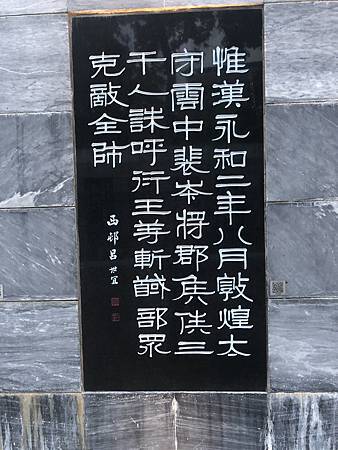 惟漢永和二年八月敦煌太
守雲中裴岑將郡兵三
千人誅呼衍王等斬馘部眾
克敵全師
西邨呂世宜